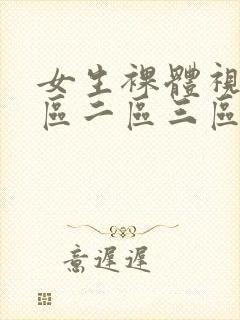 女生裸體視
區二區三區
意遲遲